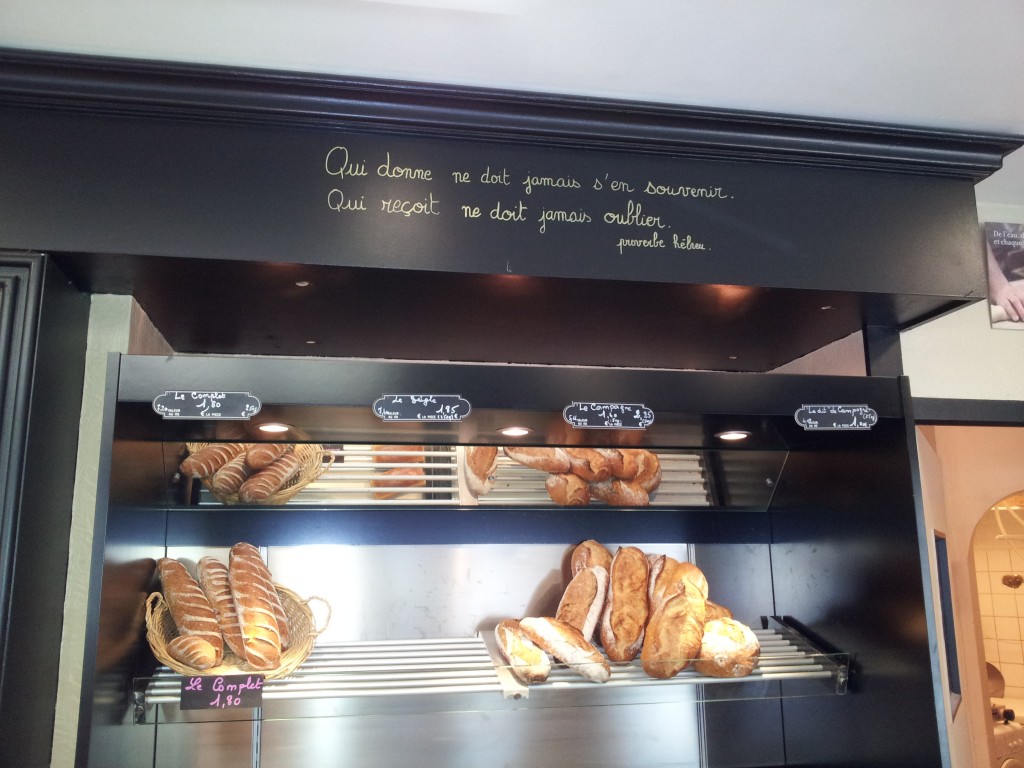 Qui donne ne doit jamais s'en souvenir.
Qui reçoit ne doit jamais oublier.
proverbe hébreu.
De l'eau, d
et chaque
Le Complet
1,80
Le Seigle
1,85
Le Campagne
Le Complet
1,80